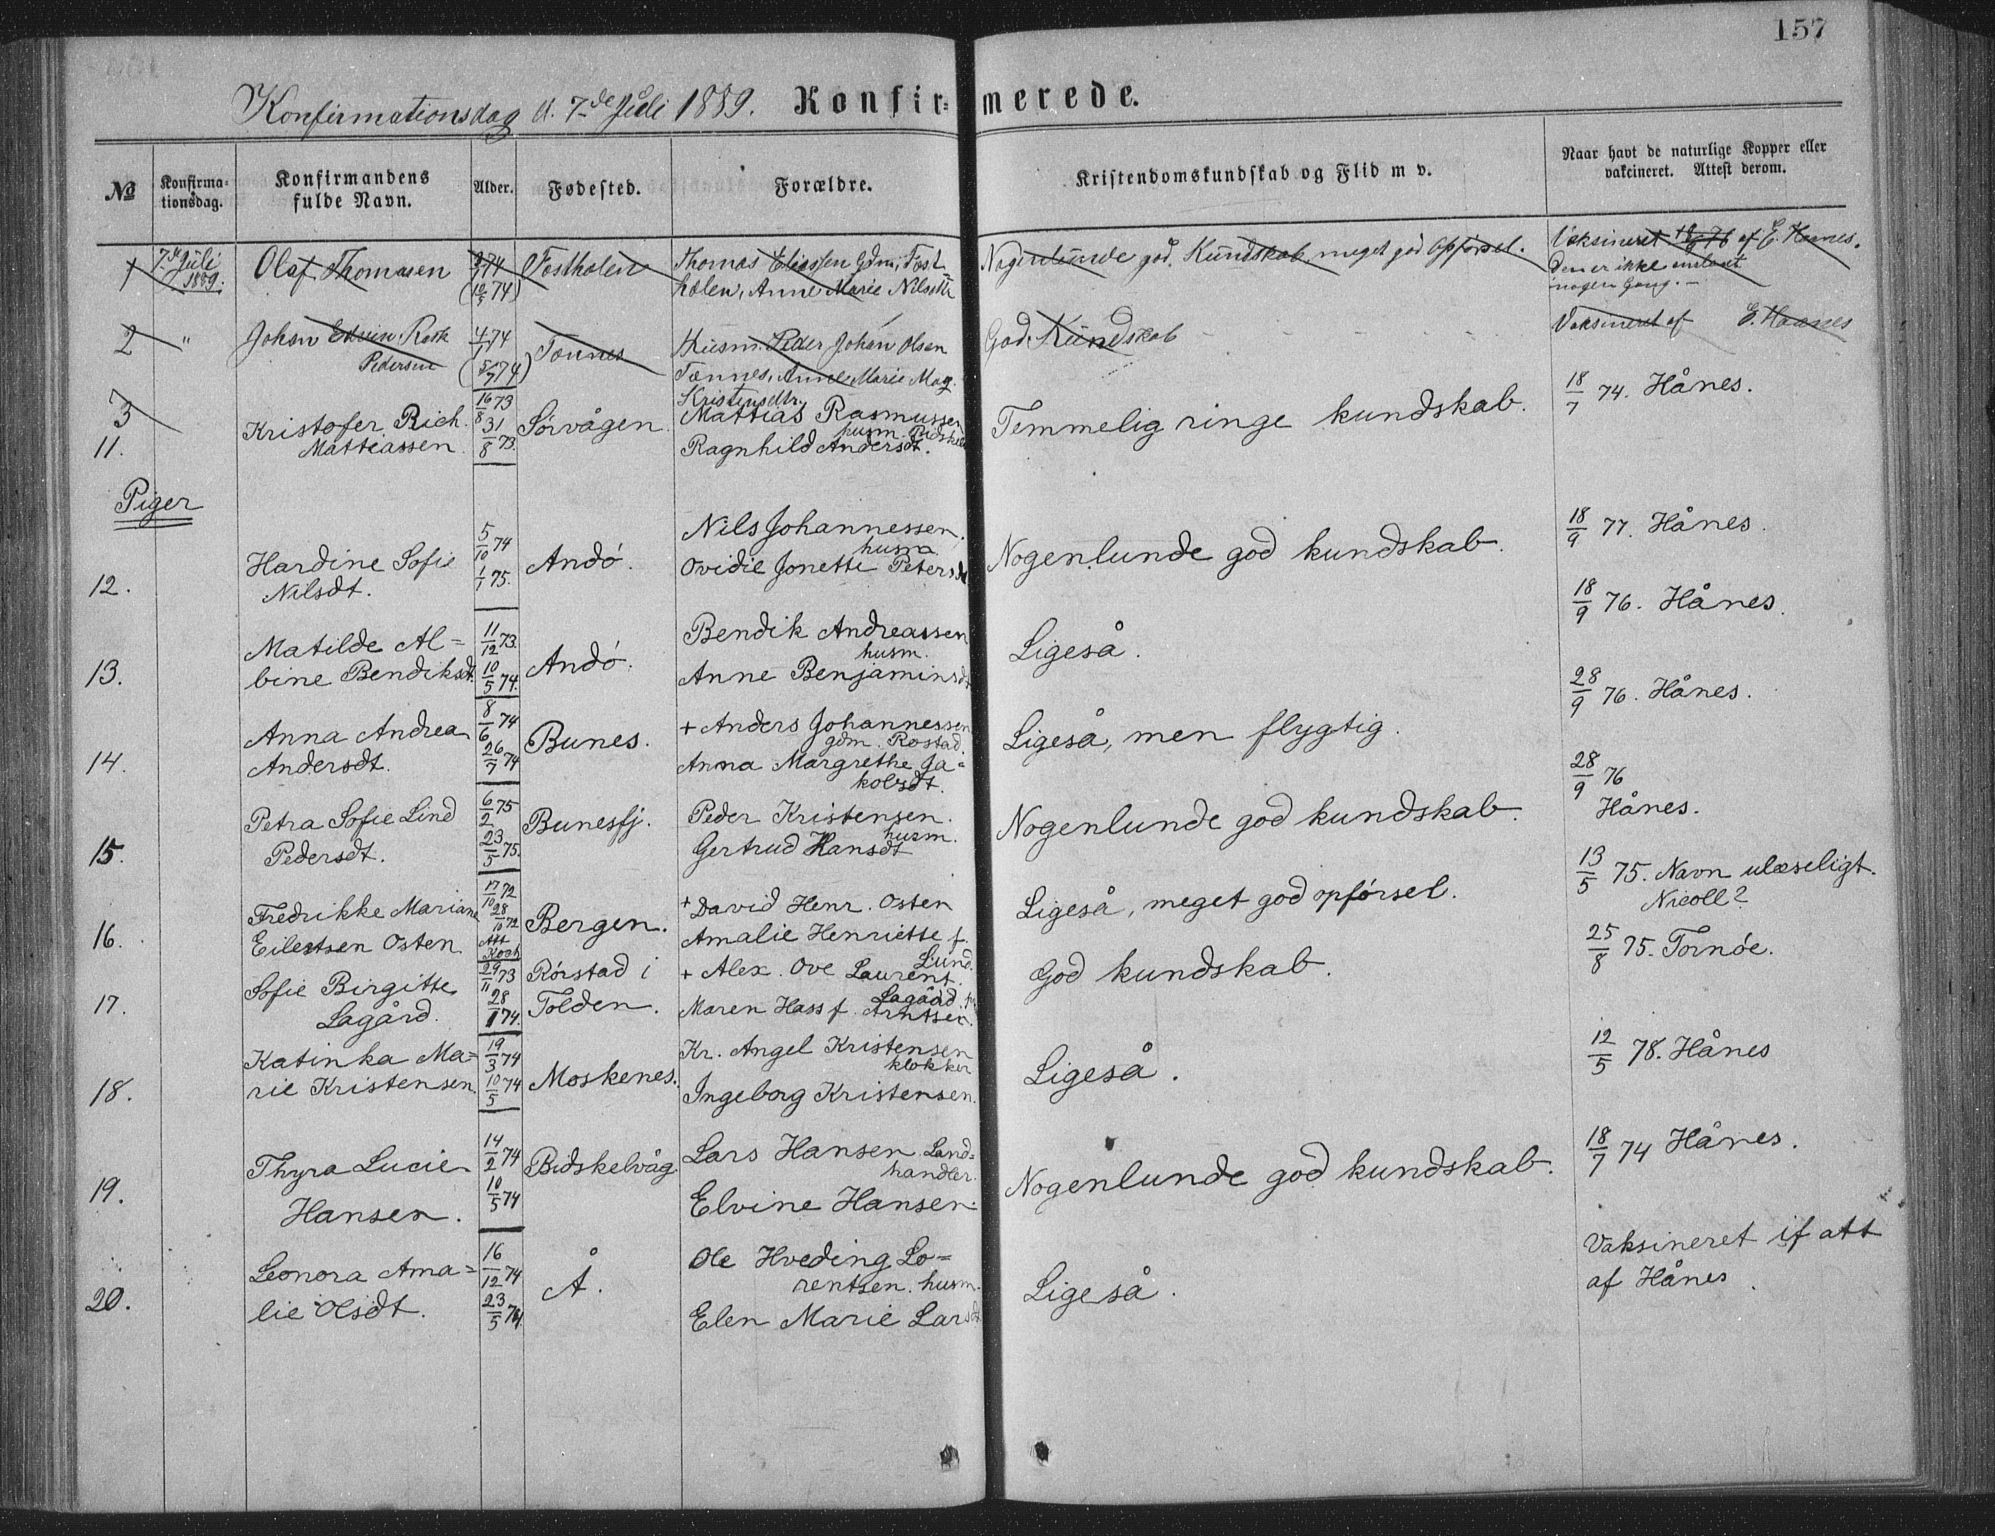 157
Konfirmationsdag d. 7de Juli 1889. Konfirmerede.
№ Konfirma-tionsdag. Konfirmandens fulde Navn. Alder. Fødested. Forældre. Kristendomskundskab og Flid m v. Naar havt de naturlige Kopper eller vakcineret. Attest derom.
1 7de Juli 1889. Olaf Thomasen 74 Tostholen Thomas Eliassen Gdm, Tost- Nogenlunde god Kundskab, meget god Opførsel. Vaksineret 76 af E. Haanes.
74) holen, Anne Marie Nilsdtr Den er ikke anslaaet
nogen Gang. —
2 " Johan Edvin Rask 74 Husm. Peder Johan Olsen God Kundskab Vaksineret af E. Haanes
Pedersen 5/7 74) Tønnes Tønnes, Anne Marie Mag.
Kristensdtr.
3 16/8 73 18/7 74. Hånes.
11. Kristofer Rich. Mattiassen 31/8 73. Sörvågen. Mattias Rasmussen husm. Ragnhild Andersdt. Temmelig ringe kundskab.
Piger
12. Hardine Sofie Nilsdt. 5/10 74 1/1 75. Andö. Nils Johannessen. husm. Ovidie Jonette Petersdt Nogenlunde god kundskab. 18/9 77. Hånes.
13. Matilde Al=bine Bendiksdt. 11/12 73. 10/5 74. Andö. Bendik Andreassen husm. Anne Benjaminsdt Ligeså. 18/9 76. Hånes.
14. Anna Andrea Andersdt. 8/6 74 26/7 74 Bunes. + Anders Johannessen gdm. Rostad. Anna Margrethe Ja=kobsdt. Ligeså, men flygtig. 28/9 76. Hånes.
15. Petra Sofie Lind Pedersdt. 6/2 75 23/5 75. Bunesfj. Peder Kristensen. husm. Gertrud Hansdt Nogenlunde god kundskab. 28/9 76 Hånes.
16. Fredrikke Mariane Eilertsen Osten. 17/10 72 28/10 72 Att Koch Bergen. + David Henr. Osten Amalie Henriette f. Lund. Ligeså, meget god opförsel. 13/5 75. Navn ulæseligt. Nicoll?
17. Sofie Birgitte Lagård. 29/11 73 28/1 74. Rörstad i Folden. + Alex. Ove Laurent. Lagård. Maren Hass f. Arntsen. God kundskab. 25/8 75. Tornöe.
18. Katinka Ma=rie Kristensen. 19/3 74 10/5 74 Moskenes. Kr. Angel Kristensen klokker Ingeborg Kristensen. Ligeså. 12/5 78. Hånes
19. Thyra Lucie Hansen. 14/2 74 10/5 74 Bidskelvåg Lars Hansen Land=handler. Elvine Hansen. Nogenlunde god kundskab. 18/7 74 Hånes.
20. Leonora Ama=lie Olsdt. 16/12 74 23/5 74 Å. Ole Hveding Lo=rentsen. husm. Elen Marie Larsdt Ligeså. Vaksineret if att af Hånes.